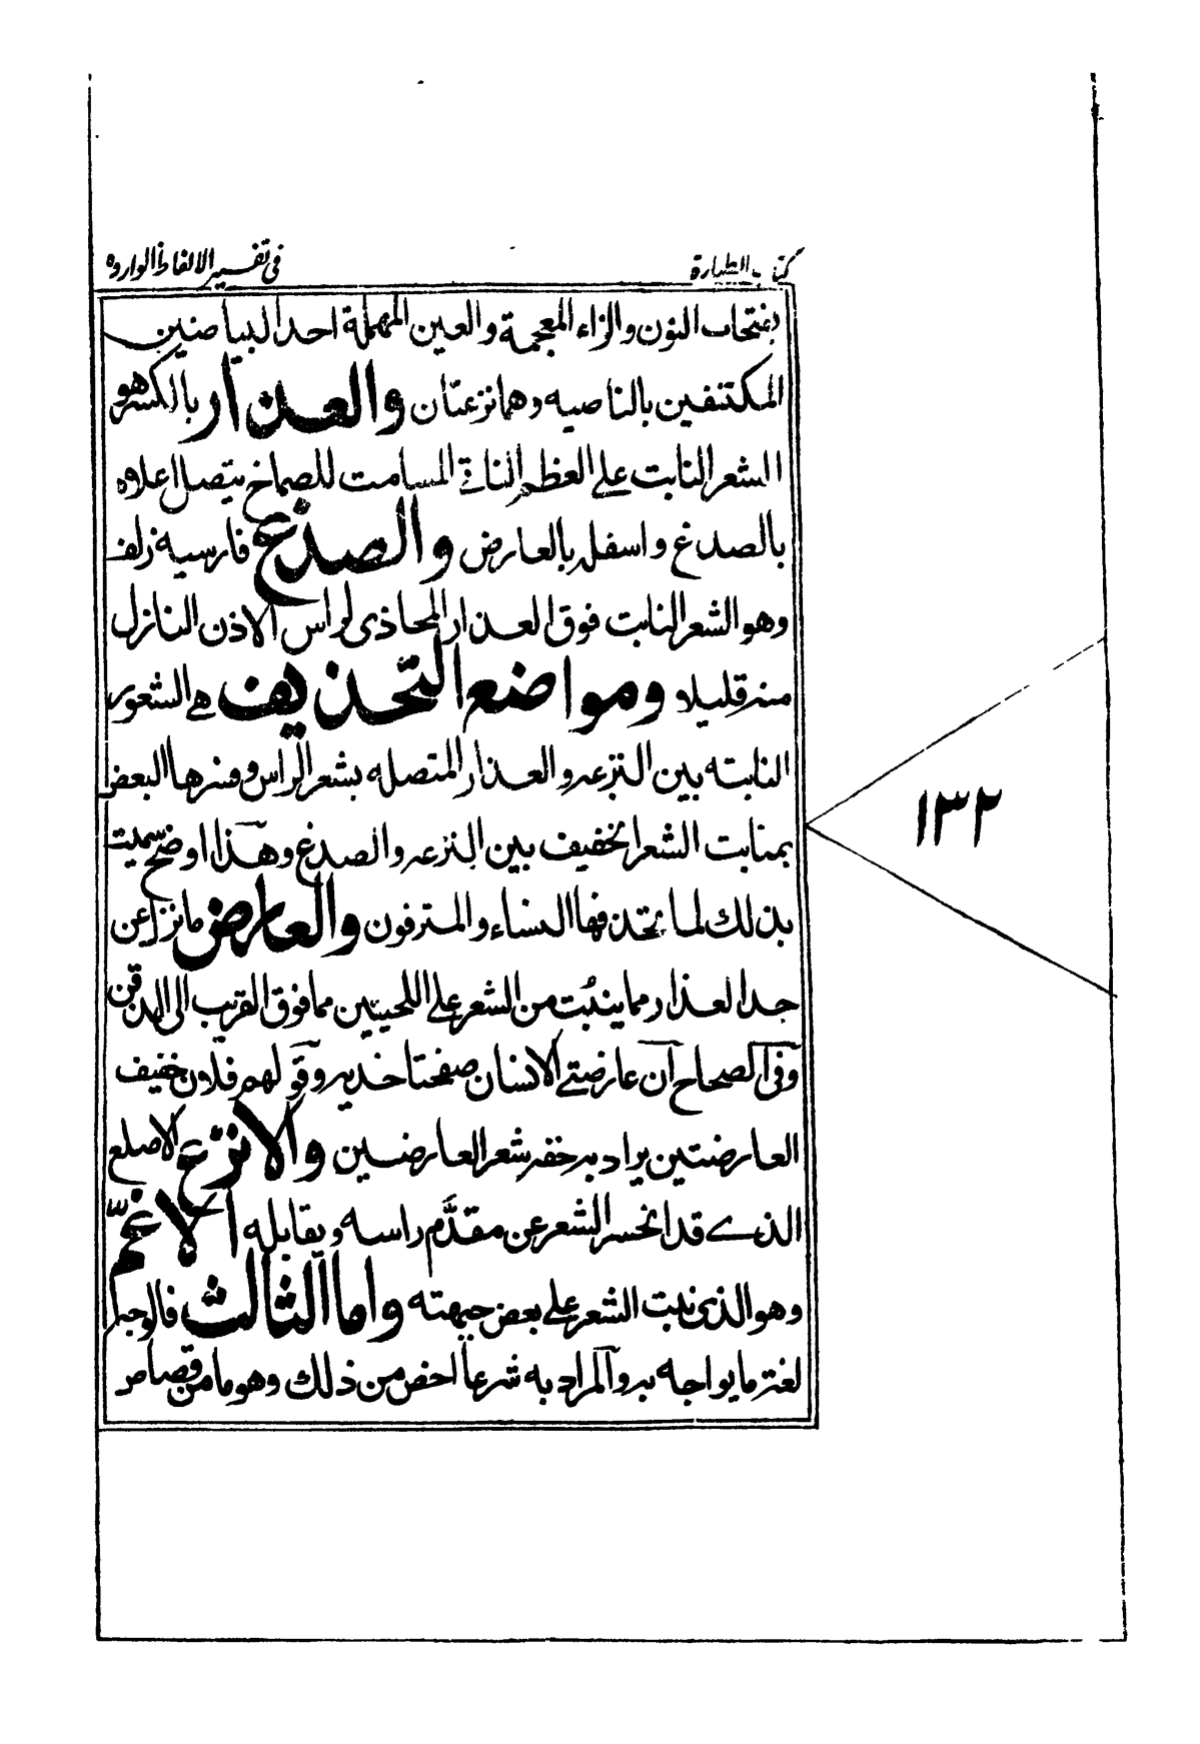 كتاب الطهارة
في تفسير الالفاظ الوارده
بفتحات النون والزاء المعجمة والعين المهملة احد البياضين
المكتنفين بالناصيه وهما نزعتان والعذار بالكسر هو
الشعر النابت على العظم الناتي المسامت للصماخ يتصل اعلاه
بالصدغ واسفله بالعارض والصدغ فارسيه زلف
وهو الشعر النابت فوق العذار المحاذى لراس الاذن النازل
منه قليلا ومواضع التحذيف هي الشعور
النابته بين النزعه والعذار المتصله بشعر الراس وفسرها البعض
بمنابت الشعر الخفيف بين النزعه والصدغ وهذا اوضح سميت
بذلك لما يحذفها النساء والمترفون والعارض ما نزل عن
حد العذار مما ينبُت من الشعر على اللحيين مما فوق القريب الى الذقن
وفي الصحاح ان عارضتي الانسان صفحتا خديه وقولهم فلان خفيف
العارضتين يراد به خفه شعر العارضين والانزع الاصلع
الذي قد انحسر الشعر عن مقدَّم راسه ويقابله الاغمّ
وهو الذى نبت الشعر على بعض جبهته واما الثالث فالوجه
لغة ما يواجه به والمراد به شرعا اخص من ذلك وهو ما من قصاص
١٣٢